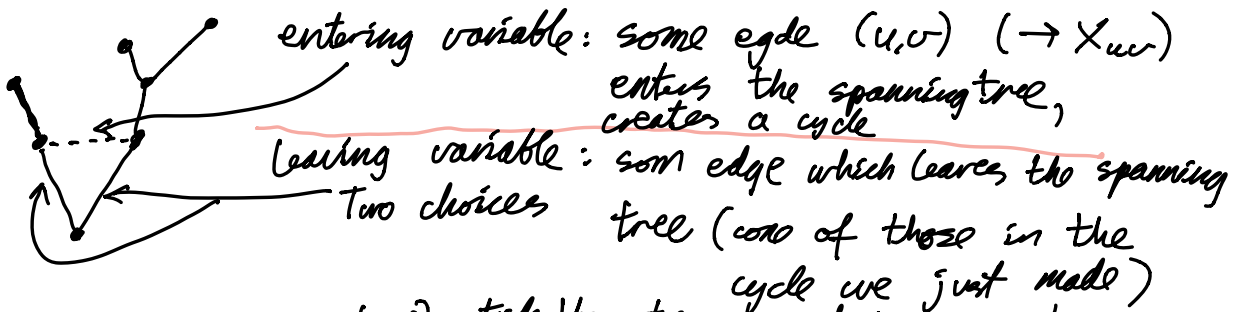 entering variable: some egde (u,v) (→ X_uv)
enters the spanning tree,
creates a cycle
leaving variable: som edge which leaves the spanning
Two choices tree (one of those in the
cycle we just made)